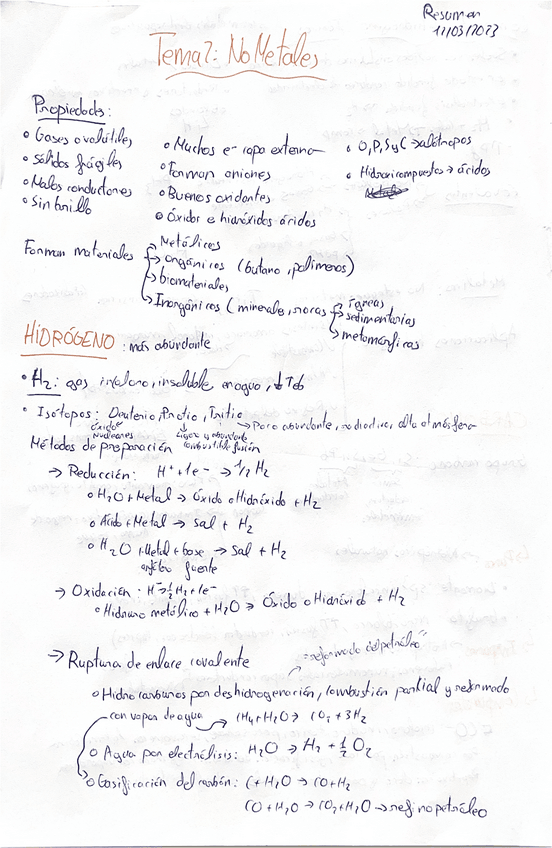 Resumen
12/03/2023
Tema 2: No Metales
Propiedades:
• Gases o volátiles
• Sólidos frágiles
• Malos conductores
• Sin brillo
• Muchos e- capa externa
• Forman aniones
• Buenos oxidantes
• Óxidos e hidróxidos ácidos
• O, P, S y C → alótropos
• Hidroxicompuestos → ácidos
Forman materiales
→ Metálicos
→ orgánicos (butano, polímeros)
→ biomateriales
→ Inorgánicos (minerales, rocas
→ ígneas
→ sedimentarias
→ metamórficas
HIDRÓGENO : más abundante
• H2: gas incoloro, insoluble en agua, ↓Tb
• Isótopos: Deuterio, Protio, Tritio
→ Poco abundante, radiactivo, alta atmósfera
Nucleares
Ligero y abundante
combustible fusión
Métodos de preparación
→ Reducción: H+ + 1e- → 1/2 H2
• H2O + Metal → Óxido o Hidróxido + H2
• Ácido + Metal → sal + H2
• H2O + Metal + base → sal + H2
anfótero fuerte
→ Oxidación: H- → 1/2 H2 + 1e-
• Hidruro metálico + H2O → Óxido o Hidróxido + H2
→ Ruptura de enlace covalente
"reformado del petróleo"
• Hidrocarburos por deshidrogenación, combustión parcial y reformado
con vapor de agua → CH4 + H2O → CO2 + 3H2
• Agua por electrólisis: H2O → H2 + 1/2 O2
• Gasificación del carbón: C + H2O → CO + H2
CO + H2O → CO2 + H2O → refino petróleo